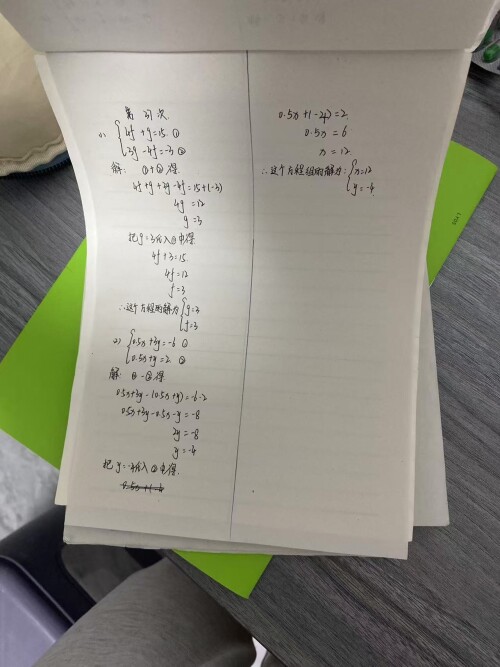 第 21 次
(1) { 4f + g = 15 ①
3g - 4f = -3 ②
解: ① + ② 得
4f + g + 3g - 4f = 15 + (-3)
4g = 12
g = 3
把 g = 3 代入 ① 中得
4f + 3 = 15
4f = 12
f = 3
∴ 这个方程的解为 { g = 3
f = 3
(2) { 0.5x + 3y = -6 ①
0.5x + y = 2 ②
解: ① - ② 得
0.5x + 3y - (0.5x + y) = -6 - 2
0.5x + 3y - 0.5x - y = -8
2y = -8
y = -4
把 y = -4 代入 ② 中得
0.5x + (-4) = 2
0.5x = 6
x = 12
∴ 这个方程组的解为: { x = 12
y = -4